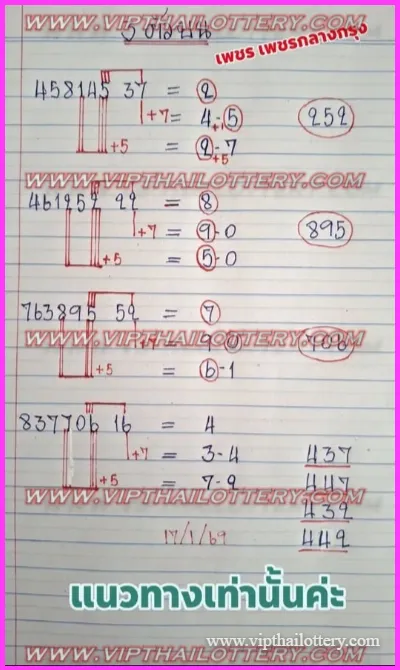 WWW.VIPTHAILOTTERY.COM
3 ตัวบน
เพชร เพชรกลางกรุง
458145 37 = 2
+7 = 4-5
252
+1
WWW.VIPTHAILOTTERY.COM
+5 = 2-7
+5
WWW.VIPTHAILOTTERY.COM
461252 22 = 8
+7 = 9-0
895
+5 = 5-0
763895 52 = 7
WWW.VIPTHAILOTTERY.COM
+7 = 9-0
+5 = 6-1
837706 16 = 4
+7 = 3-4
437
WWW.VIPTHAILOTTERY.COM
+5 = 7-2
447
432
17/1/69
442
แนวทางเท่านั้นค่ะ
www.vipthailottery.com
WWW.VIPTHAILOTTERY.COM